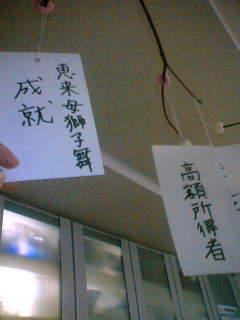 恵来母獅子舞
成就
高額所得者